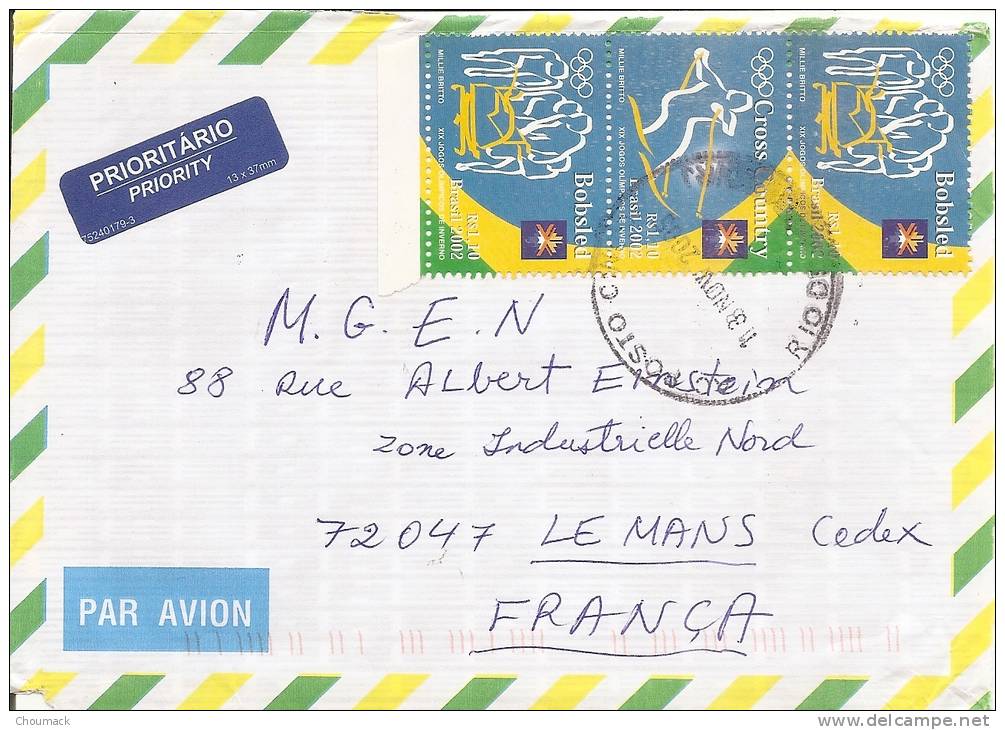 PRIORITÁRIO
PRIORITY
13 x 37mm
75240179-3
MILLIE BRITTO
XIX JOGOS OLÍMPICOS DE INVERNO
Bobsled
R$1,10
Brasil 2002
MILLIE BRITTO
XIX JOGOS OLÍMPICOS DE INVERNO
Cross Country
R$1,10
Brasil 2002
MILLIE BRITTO
XIX JOGOS
Bobsled
Brasil 2002
13 NOV
RIO DE
M. G. E. N
88 Rue ALbert Einstein
Zone Industrielle Nord
72047 LE MANS Cedex
FRANÇA
PAR AVION
Choumack
www.delcampe.net